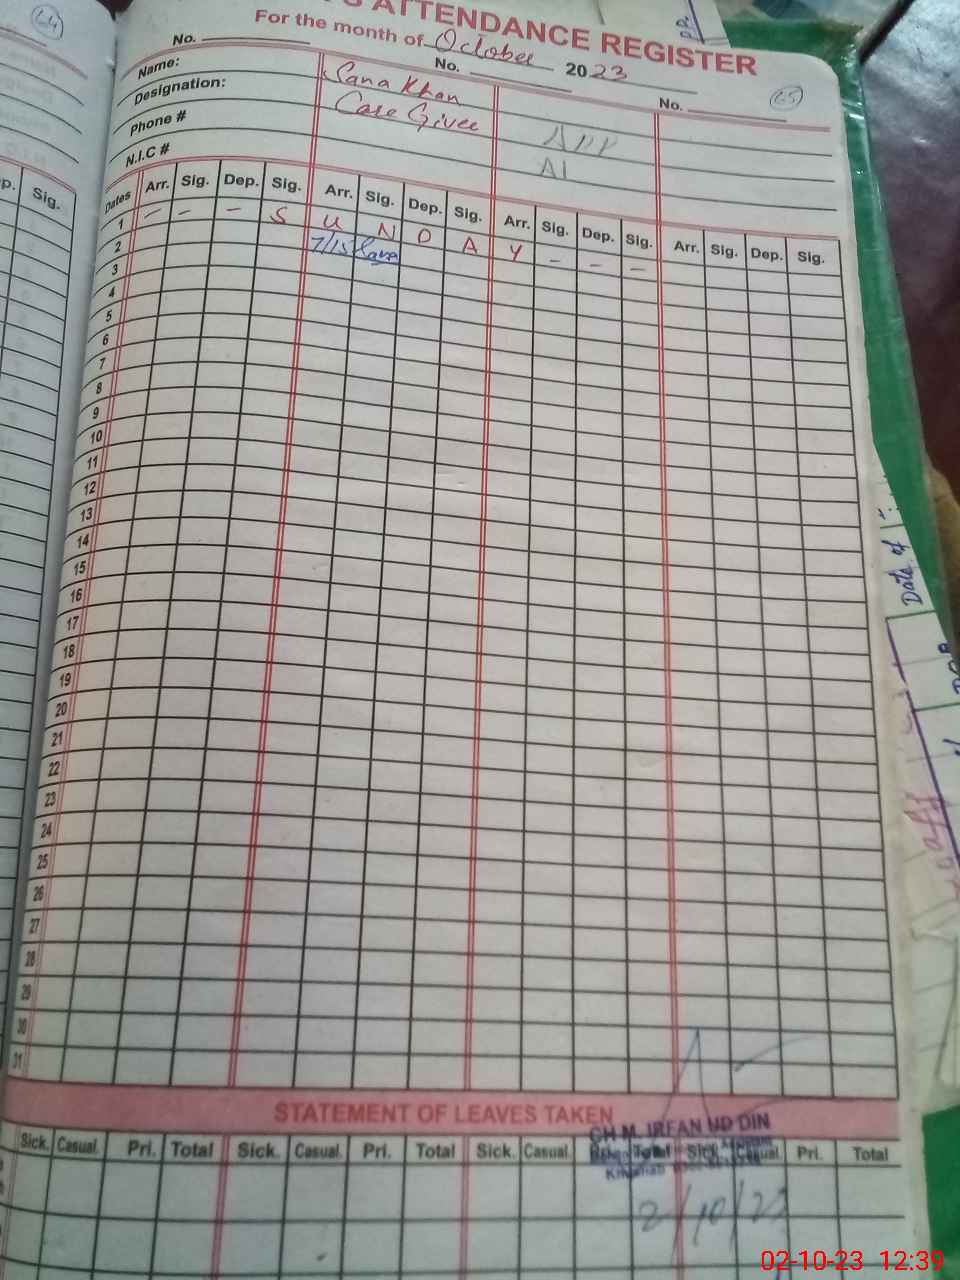 'S ATTENDANCE REGISTER
For the month of October 2023
No. No. No.
64
65
Name: Sana Khan
Designation: Care Givee
Phone #
N.I.C #
APP
Al
p. Sig.
Dates Arr. Sig. Dep. Sig. Arr. Sig. Dep. Sig. Arr. Sig. Dep. Sig. Arr. Sig. Dep. Sig.
1 – – – S U N D A Y – – –
2 7/15 Sana
3
4
5
6
7
8
9
10
11
12
13
14
15
16
17
18
19
20
21
22
23
24
25
26
27
28
29
30
31
STATEMENT OF LEAVES TAKEN
CH M. IRFAN UD DIN
Sick. Casual. Pri. Total Sick. Casual. Pri. Total Sick. Casual. Total Sick. Casual. Pri. Total
2/10/23
Date of
DOB
Staff
02-10-23 12:39